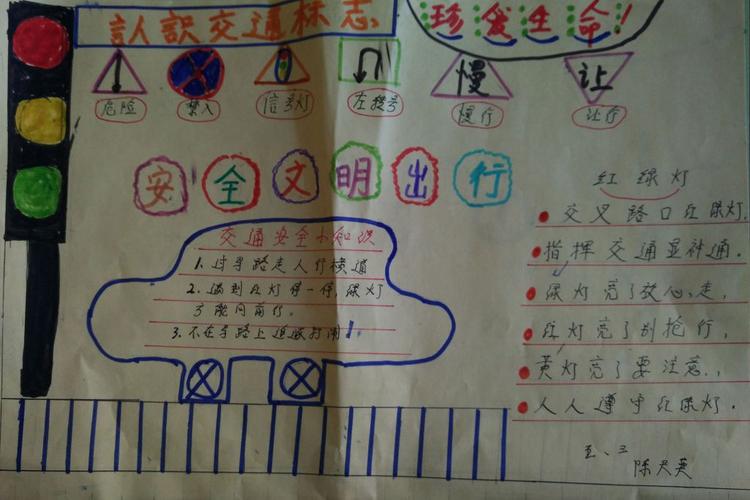 认识交通标志
珍爱生命!
慢
让
危险
禁入
信号灯
慢行
让行
安全文明出行
交通安全小知识
1. 过马路走人行横道
2. 遇到红灯停一停,绿灯
方能向前行。
3. 不在马路上追逐打闹!
红绿灯
交叉路口红绿灯,
指挥交通显神通.
绿灯亮了放心走,
红灯亮了别抢行,
黄灯亮了要注意,
人人遵守红绿灯.
五、三